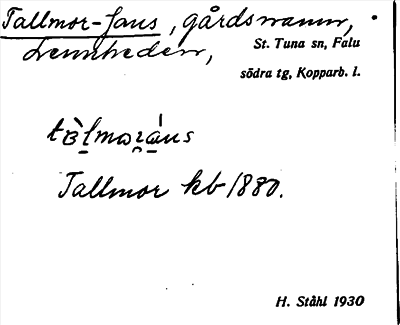 Tallmor-Jans, gårdsnamn,
Lennheden, St. Tuna sn, Falu
södra tg, Kopparb. l.
Tallmor kb 1880.
H. Ståhl 1930